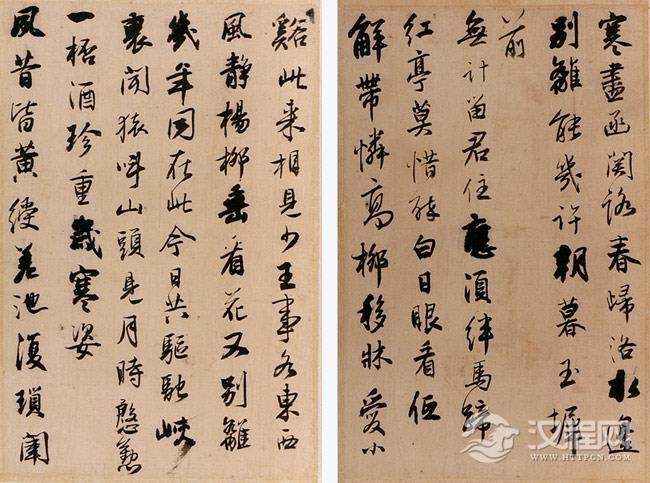 寒盡函関路春歸洛水邊
別離能幾許朝暮玉墀
前
無計留君住應須絆馬蹄
紅亭莫惜醉白日眼看低
解帶憐高栁移牀愛小
谿此来相見少王事各東西
風静楊栁垂看花又別離
幾年同在此今日共驅馳峽
裏聞猿叫山頭見月時慇懃
一桮酒珍重歲寒姿
夙昔皆黄綬差池復瑣闈
汉程网
HTTPCN.COM